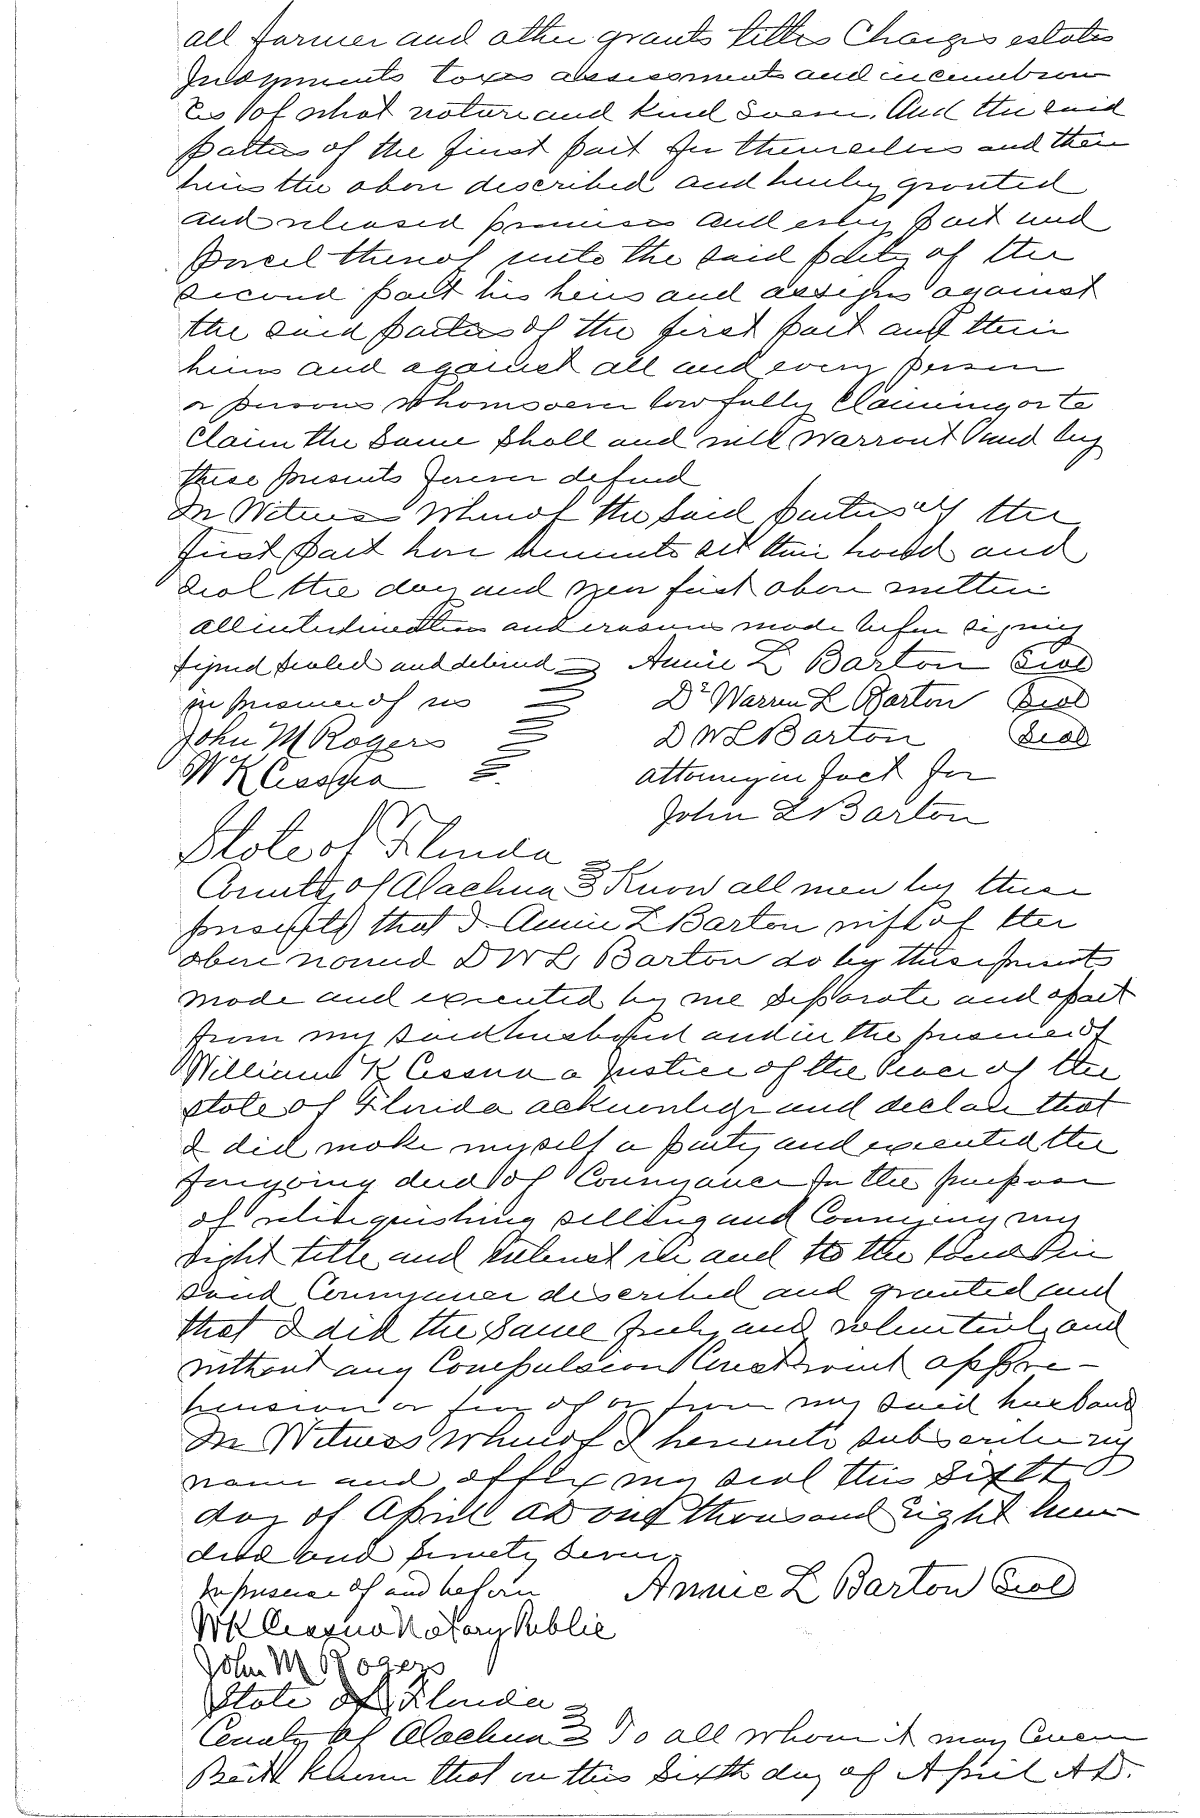 all former and other grants titles Charges estates
Judgments taxes assessments and incumbran
ces of what nature and kind soever. And the said
parties of the first part for themselves and their
heirs the above described and hereby granted
and released premises and every part and
parcel thereof unto the said party of the
second part his heirs and assigns against
the said parties of the first part and their
heirs and against all and every person
or persons whomsoever lawfully Claiming or to
Claim the Same Shall and will Warrant and by
these presents forever defend
In Witness Whereof the Said parties of the
first part have hereunto set their hand and
seal the day and year first above written
all interlineations and erasures made before signing
signed sealed and delivered Annie L Barton Seal
in presence of us Dr Warren L Barton Seal
John M Rogers D W L Barton Seal
W K Cessna attorney in fact for
John L Barton
State of Florida
County of Alachua Know all men by these
presents that I Annie L Barton wife of the
above named D W L Barton do by these presents
made and executed by me Separate and apart
from my said husband and in the presence of
William K Cessna a Justice of the Peace of the
state of Florida acknowledge and declare that
I did make myself a party and executed the
foregoing deed of Conveyance for the purpose
of relinquishing selling and Conveying my
right title and interest in and to the land in
said Conveyance described and granted and
that I did the Same freely and voluntarily and
without any Compulsion Constraint appre-
hension or fear of or from my said husband
In Witness Whereof I hereunto subscribe my
name and affix my seal this Sixth
day of April AD one thousand Eight hun
dred and Seven
In presence of and before Annie L Barton Seal
W K Cessna Notary Public
John M Rogers
State of Florida
County of Alachua To all whom it may Concern
Be it Known that on this Sixth day of April A.D.